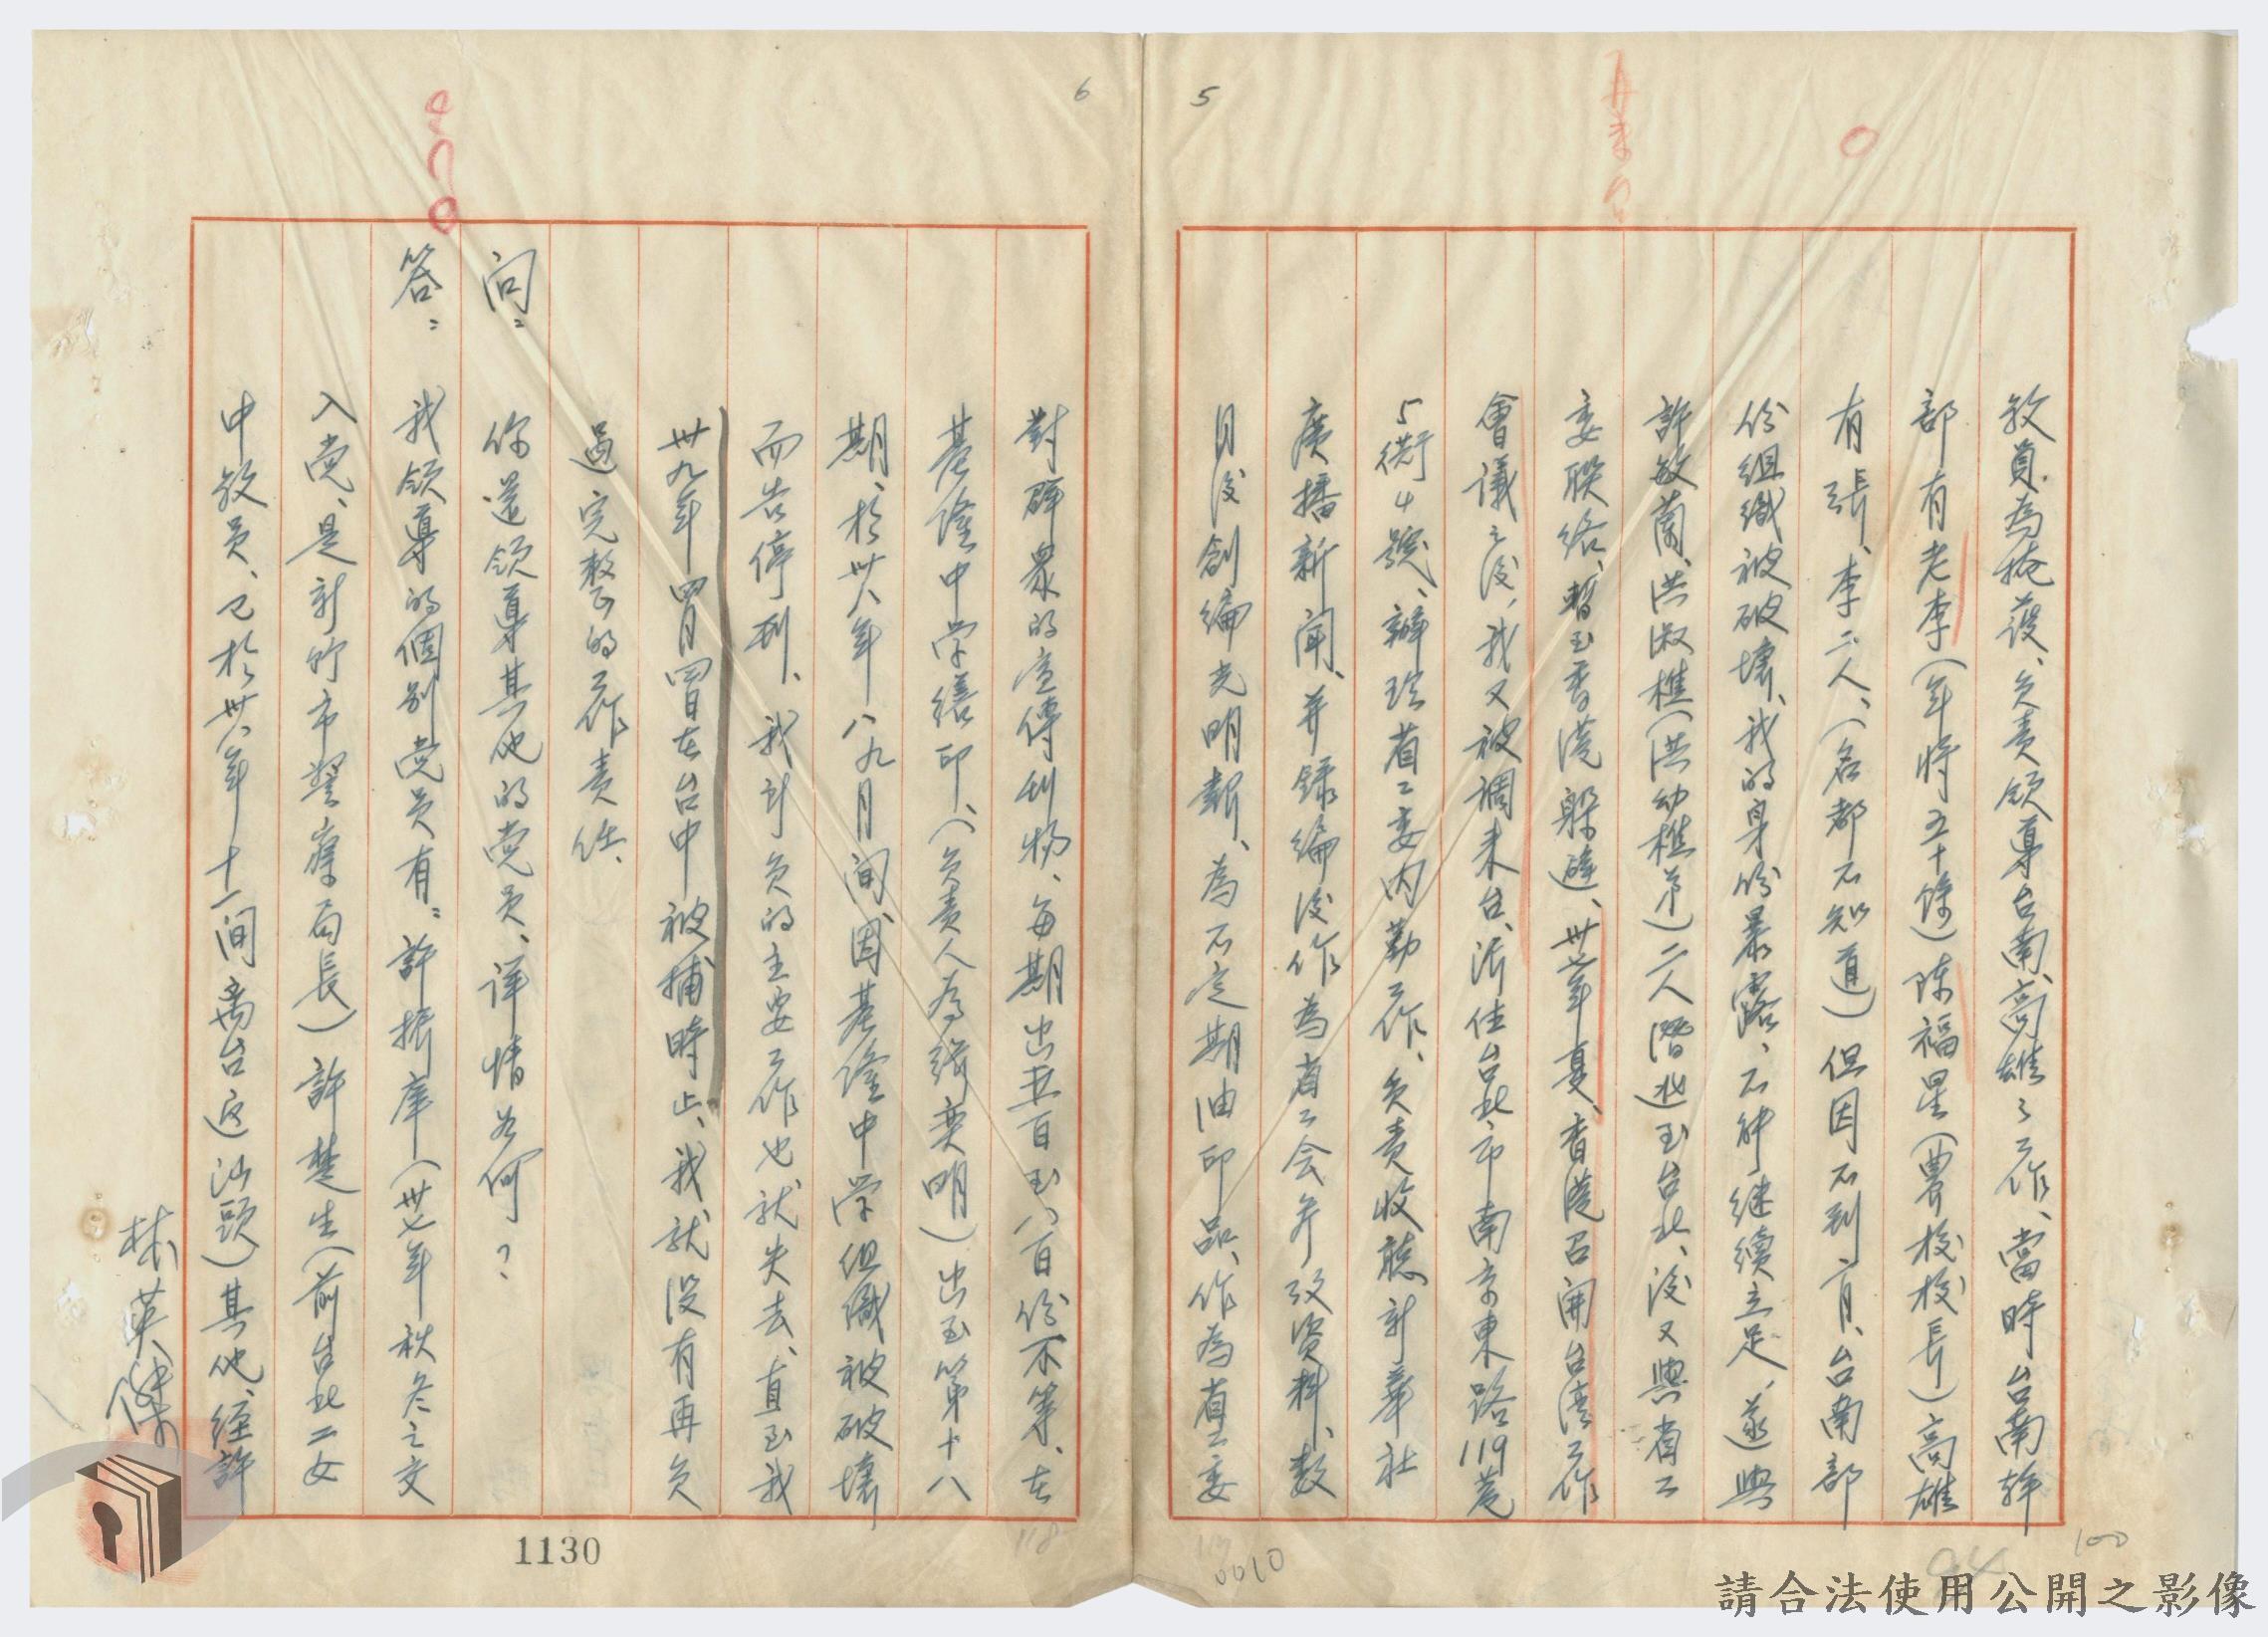 5
教員為掩護、负责领导台南、高雄之工作、當時台南幹
部有老李(年將五十餘)陈福星(農校校長)高雄
有張、李二人、(名都不知道)但因不到一月、台南部
份組織被破壞、我的身份暴露、不能继續立足、遂與
許敏蘭、洪淑樵(洪幼樵弟)二人潛逃至台北、後又與省工
委联络、暫至香港躲避、卅七年夏、香港召開台湾工作
會議之後、我又被調来台、濟住台北市南京東路119巷
5衖4號、辦理省工委内勤工作、负责收聽新華社
廣播新聞、并錄編後作為省工会参攷資料、数
月後創編光明報、為不定期油印品、作為省工委
6
對群眾的宣傳刊物、每期出五百至八百份不等、在
基隆中学繕印、(负责人為鍾奕明)出至第十八
期、於卅八年八九月间、因基隆中学组織被破壞
而告停刊、我計负的主要工作也就失去、直至我
卅九年四月四日在台中被捕時止、我就没有再负
過完整的工作责任、
问：你還领導其他的党员、详情为何？
答：我领導的個别党员有：許振庠(卅七年秋冬之交
入党、是新竹市警察局長)許楚生(前台北二女
中教员、已於卅八年十一间离台返汕頭)其他、经許
林英傑
1130
118
0010
100
請合法使用公開之影像